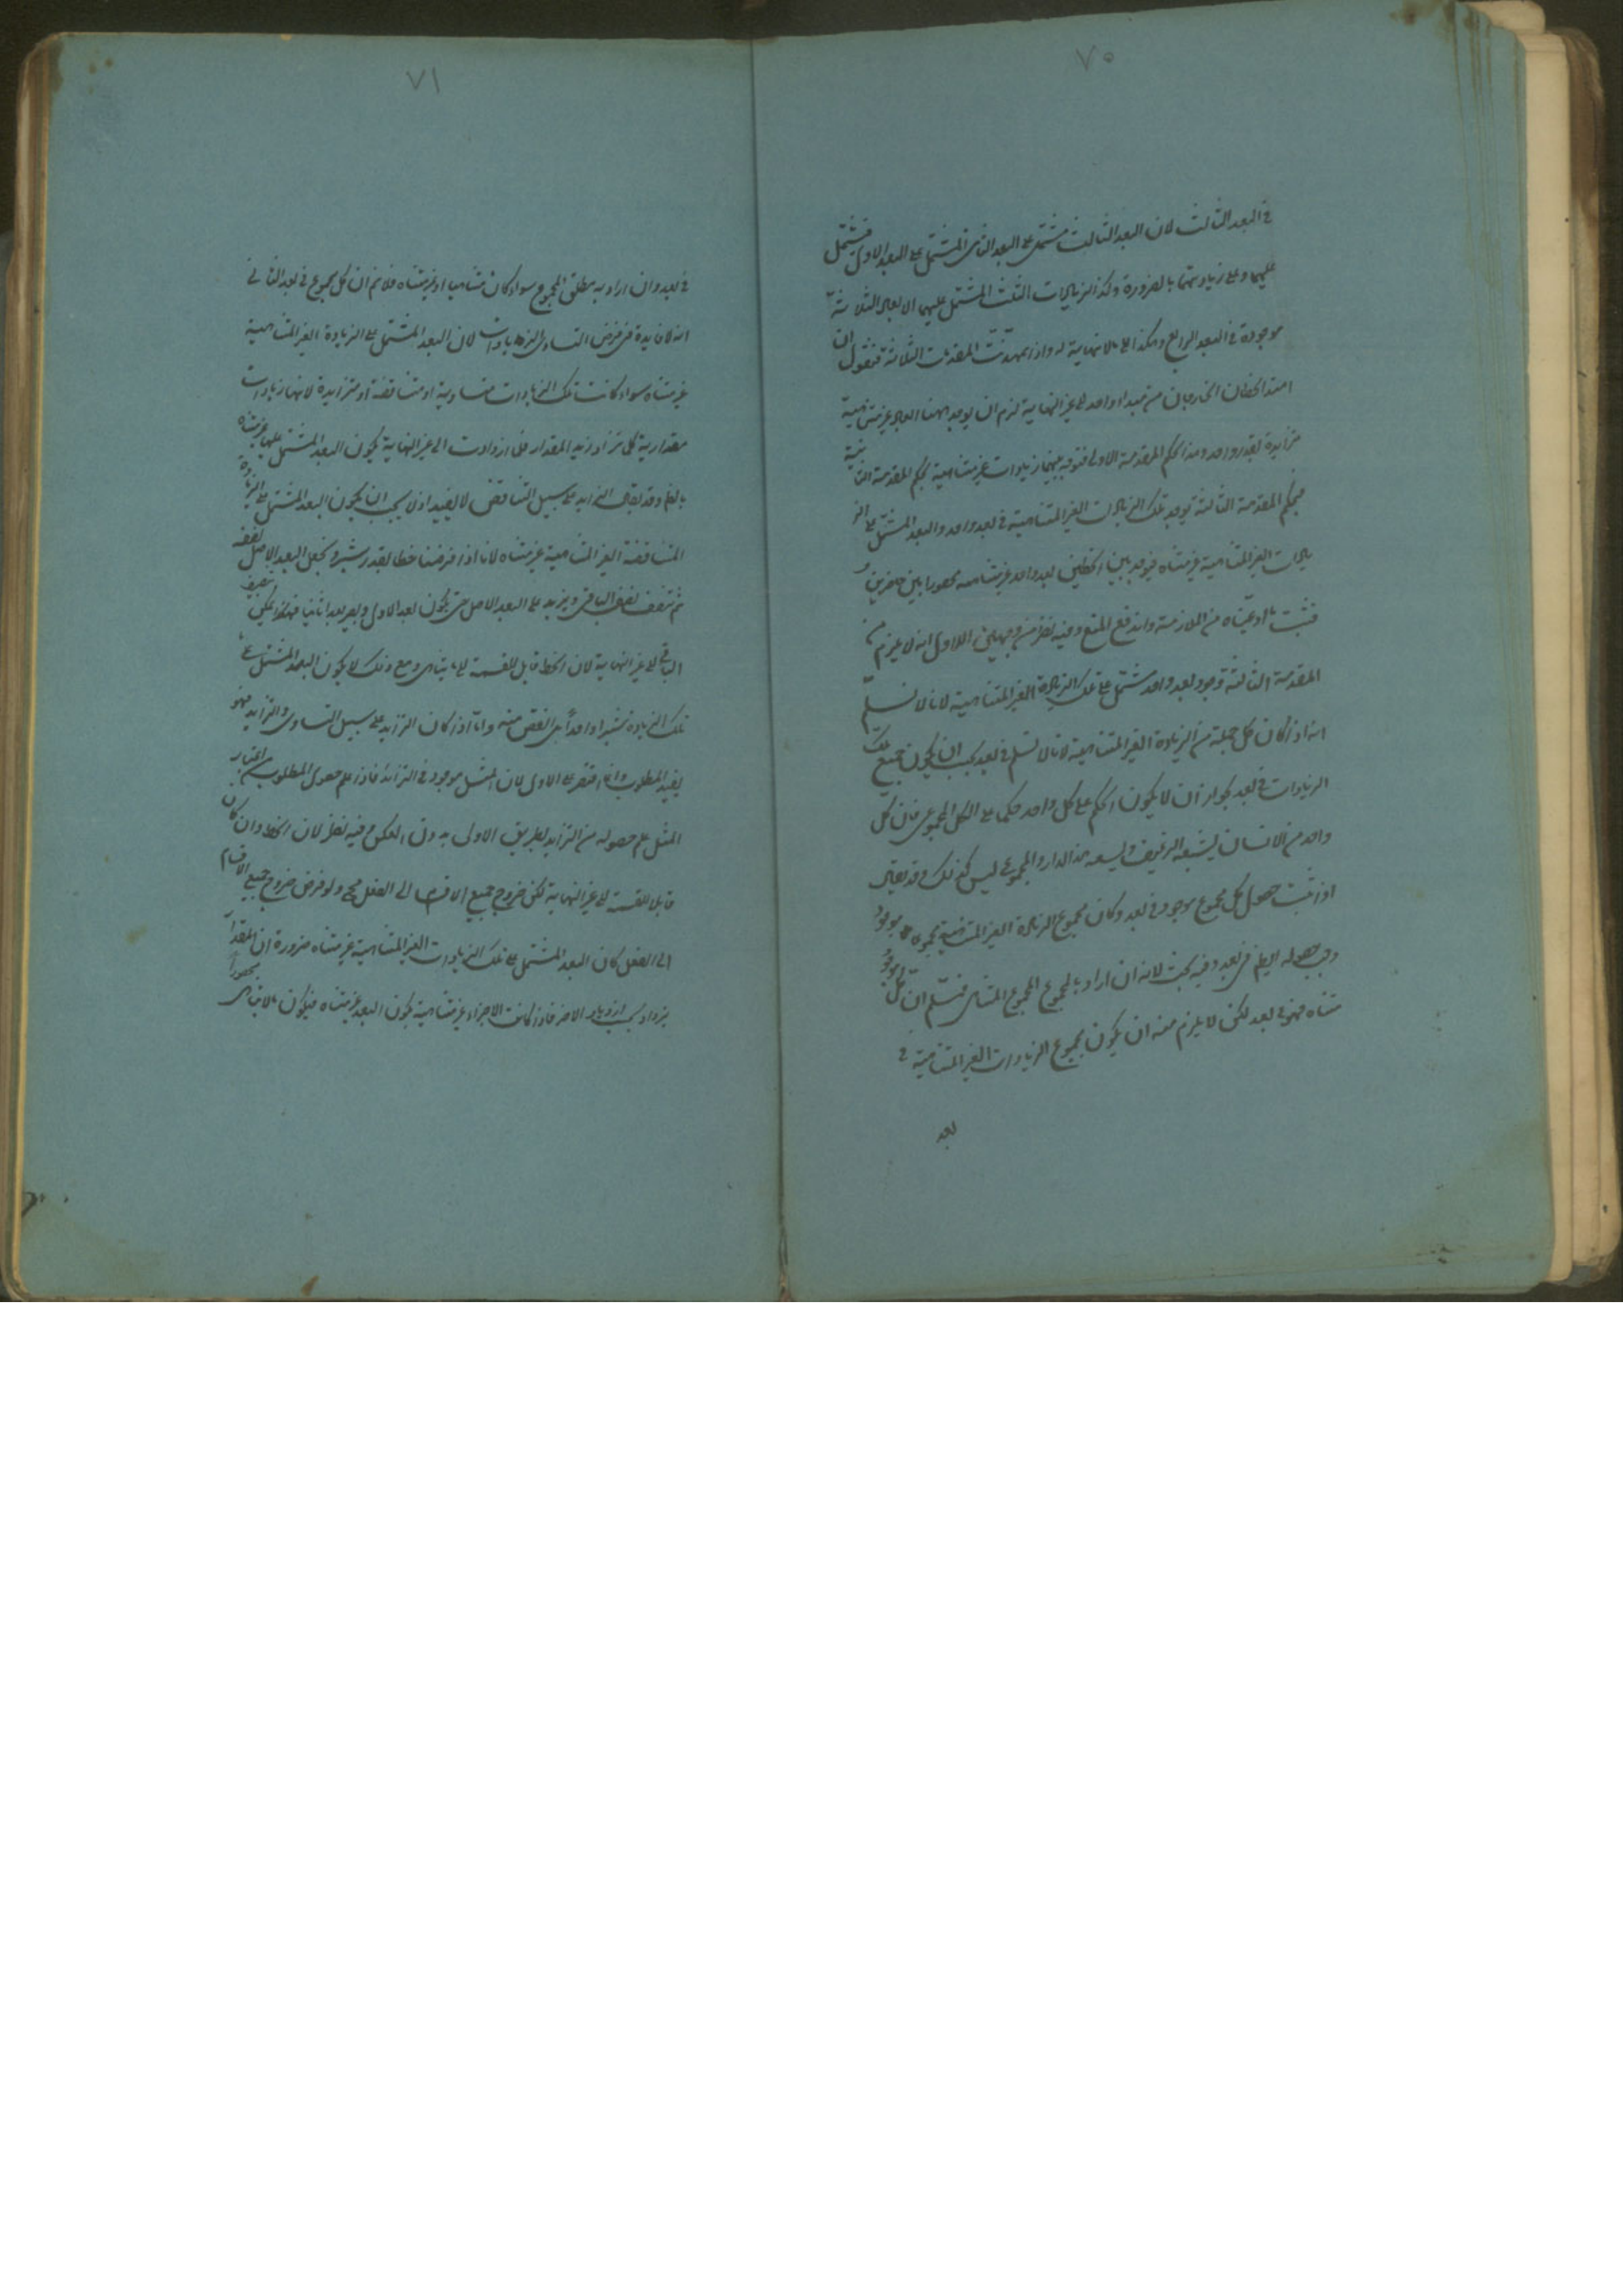 ٧٠
في البعد الثالث لان البعد الثالث مشتمل على البعد الثاني المشتمل على البعد الاول فيشتمل
عليهما وعلى زيادتهما بالضرورة وكذا الزيادات الثلث المشتمل عليها الابعاد الثلاثة
موجودة في البعد الرابع وهكذا الى ما لا نهاية له واذا تمهدت المقدمات الثلاثة فنقول ان
امتد الخطان الخارجان من مبدا واحد الى غير النهاية لزم ان يوجد بينهما ابعاد غير متناهية
متزايدة بقدر واحد وهذا بحكم المقدمة الاولى فتوجد بينهما زيادات غير متناهية بحكم المقدمة الثانية
فبحكم المقدمة الثالثة توجد تلك الزيادات الغير المتناهية في بعد واحد والبعد المشتمل على الز
يادات الغير المتناهية غير متناه فيوجد بين الخطين بعد واحد غير متناه محصورا بين حاصرين و
فثبت ما ادعيناه من الملازمة واندفع المنع وفيه نظر من وجهين الاول انه لا يلزم من
المقدمة الثالثة وجود بعد واحد مشتمل على تلك الزيادة الغير المتناهية لانا لا نسلم
انه اذا كان كل جملة من الزيادة الغير المتناهية لانا لا نسلم في بعد يجب ان يكون جميع تلك
الزيادات في بعد لجواز ان لا يكون الحكم على كل واحد حكما على الكل المجموعي فان كل
واحد من الانسان يشبعه الرغيف ويسعه هذا الدار والمجموع ليس كذلك وقد يقال
اذا ثبت حصول كل مجموع موجود في بعد وكان مجموع الزيادة الغير المتناهية مجموعا موجودا
وجب حصوله ايضا في بعد وفيه بحث لانه ان اراد بالمجموع المجموع المتناهي فنسلم ان كل مجموع
متناه فهو في بعد لكن لا يلزم منه ان يكون مجموع الزيادات الغير المتناهية في
بعد
٧١
في بعد وان اراد به مطلق المجموع سواء كان متناهيا او غير متناه فلا نم ان كل مجموع في بعد الثاني
انه لا فايدة في فرض التساوي الزيادات لان البعد المشتمل على الزيادة الغير المتناهية
غير متناه سواء كانت تلك الزيادات متساوية او متناقضة او متزايدة لانها زيادات
مقدارية كلما تزاد زيد المقدار فلما ازدادت الى غير النهاية يكون البعد المشتمل عليها غير متناه
بالضرورة وقد يقال التزايد على سبيل التناقض لا يفيد اذ لا يجب ان يكون البعد المشتمل على الزيادة
المتناقصة الغير المتناهية غير متناه لانا اذا فرضنا خطا بقدر شبر ونجعل البعد الاصل نصفه
ثم ننصف نصف الباقي ويزيد على البعد الاصل حتى يكون بعد الاول ويصير بعدا ثانيا فهكذا يمكن تنصيف
الباقي الى غير النهاية لان الخط قابل للقسمة الى ما يتناهى ومع ذلك لا يكون البعد المشتمل على
تلك الزيادة شبرا واحدا بل انقص منه واما اذا كان التزايد على سبيل التساوي والتزايد فهو
يفيد المطلوب وانما اقتصر على الاول لان المثل موجود في الزائد فاذا علم حصول المطلوب من اعتبار
المثل علم حصوله من التزايد بطريق الاولى بدون العكس وفيه نظر لان الخط وان كان
قابلا للقسمة الى غير النهاية لكن خروج جميع الاقسام الى الفعل مح ولو فرض خروج جميع الاقسام
الى الفعل كان البعد المشتمل على تلك الزيادات الغير المتناهية غير متناه ضرورة ان المقدار
يزداد بحسب ازدياد الاجزاء فاذا كانت الاجزاء غير متناهية يكون البعد غير متناه فيكون ما لا يتناهى محصورا